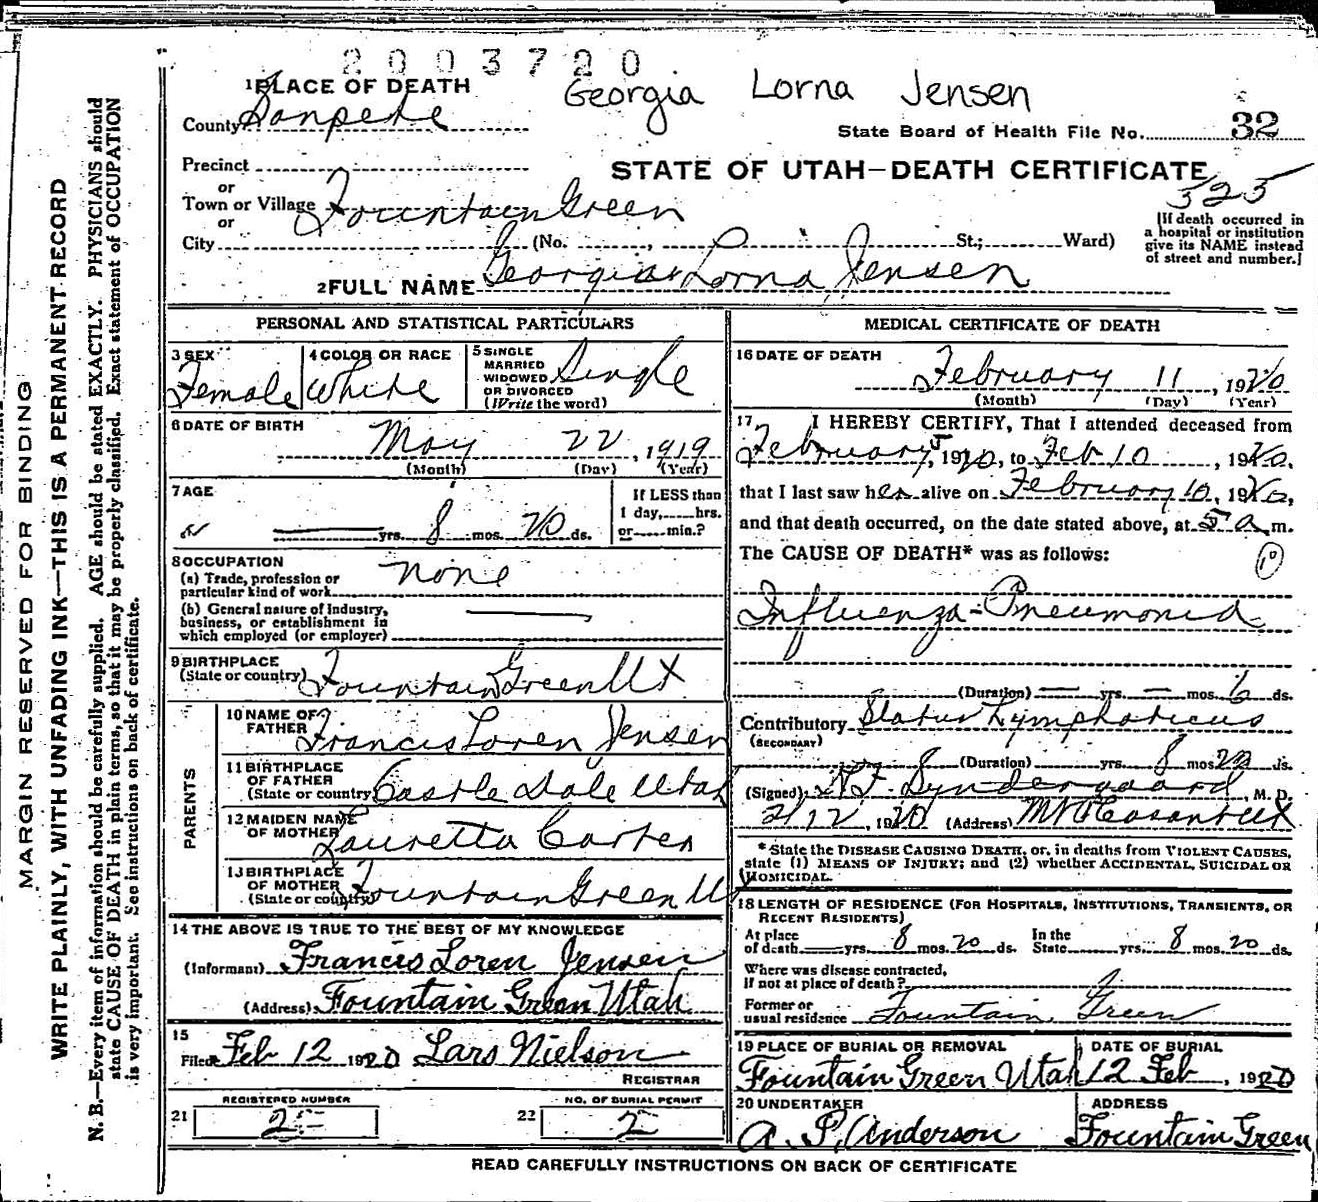 2003720
1 PLACE OF DEATH
Georgia Lorna Jensen
County Sanpete
State Board of Health File No. 32
Precinct
or
STATE OF UTAH—DEATH CERTIFICATE
325
Town or Village Fountain Green
or
City (No. , St.; Ward)
[If death occurred in
a hospital or institution
give its NAME instead
of street and number.]
2 FULL NAME Georgia Lorna Jensen
MARGIN RESERVED FOR BINDING
WRITE PLAINLY, WITH UNFADING INK—THIS IS A PERMANENT RECORD
N. B.—Every item of information should be carefully supplied. AGE should be stated EXACTLY. PHYSICIANS should
state CAUSE OF DEATH in plain terms, so that it may be properly classified. Exact statement of OCCUPATION
is very important. See instructions on back of certificate.
PERSONAL AND STATISTICAL PARTICULARS
3 SEX
Female
4 COLOR OR RACE
White
5 SINGLE
MARRIED
WIDOWED
OR DIVORCED
(Write the word)
Single
6 DATE OF BIRTH
May 22, 1919
(Month) (Day) (Year)
7 AGE
yrs. 8 mos. 20 ds.
If LESS than
1 day, hrs.
or min.?
8 OCCUPATION
(a) Trade, profession or
particular kind of work none
(b) General nature of Industry,
business, or establishment in
which employed (or employer)
9 BIRTHPLACE
(State or country) Fountain Green Ut
PARENTS
10 NAME OF
FATHER Francis Loren Jensen
11 BIRTHPLACE
OF FATHER
(State or country) Castle Dale Utah
12 MAIDEN NAME
OF MOTHER Lauretta Carter
13 BIRTHPLACE
OF MOTHER
(State or country) Fountain Green Ut
14 THE ABOVE IS TRUE TO THE BEST OF MY KNOWLEDGE
(Informant) Francis Loren Jensen
(Address) Fountain Green Utah
15
Filed Feb 12 1920 Lars Nielson
REGISTRAR
REGISTERED NUMBER
21 2
NO. OF BURIAL PERMIT
22 2
MEDICAL CERTIFICATE OF DEATH
16 DATE OF DEATH
February 11, 1920
(Month) (Day) (Year)
17 I HEREBY CERTIFY, That I attended deceased from
February 5, 1920, to Feb 10, 1920,
that I last saw her alive on February 10, 1920,
and that death occurred, on the date stated above, at 5 a m.
The CAUSE OF DEATH* was as follows:
10
Influenza-Pneumonia
(Duration) yrs. mos. 6 ds.
Contributory Status Lymphaticus
(SECONDARY)
(Duration) yrs. 8 mos 20 ds.
(Signed) Syndergaard, M. D.
2/12, 1920 (Address) Mt Pleasant Ut
* State the DISEASE CAUSING DEATH, or, in deaths from VIOLENT CAUSES,
state (1) MEANS OF INJURY; and (2) whether ACCIDENTAL, SUICIDAL OR
HOMICIDAL.
18 LENGTH OF RESIDENCE (FOR HOSPITALS, INSTITUTIONS, TRANSIENTS, OR
RECENT RESIDENTS)
At place
of death yrs. 8 mos. 20 ds.
In the
State yrs. 8 mos. 20 ds.
Where was disease contracted,
if not at place of death?
Former or
usual residence Fountain Green
19 PLACE OF BURIAL OR REMOVAL
Fountain Green Utah
DATE OF BURIAL
12 Feb, 1920
20 UNDERTAKER
A. P. Anderson
ADDRESS
Fountain Green
READ CAREFULLY INSTRUCTIONS ON BACK OF CERTIFICATE